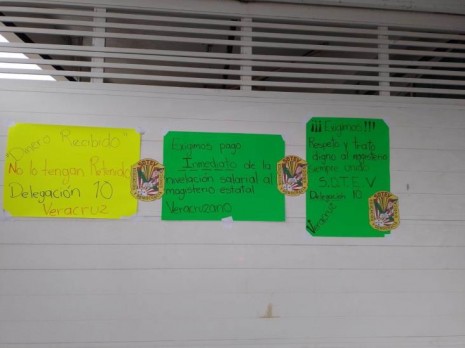 "Dinero Recibido"
No lo tengan Retenido
Delegación 10
Veracruz
Exigimos pago
Inmediato de la
nivelación salarial al
magisterio estatal
Veracruzano
¡¡¡ Exigimos !!!
Respeto y trato
digno al magisterio
siempre unido
S.D.T.E.V
Delegación 10
Veracruz